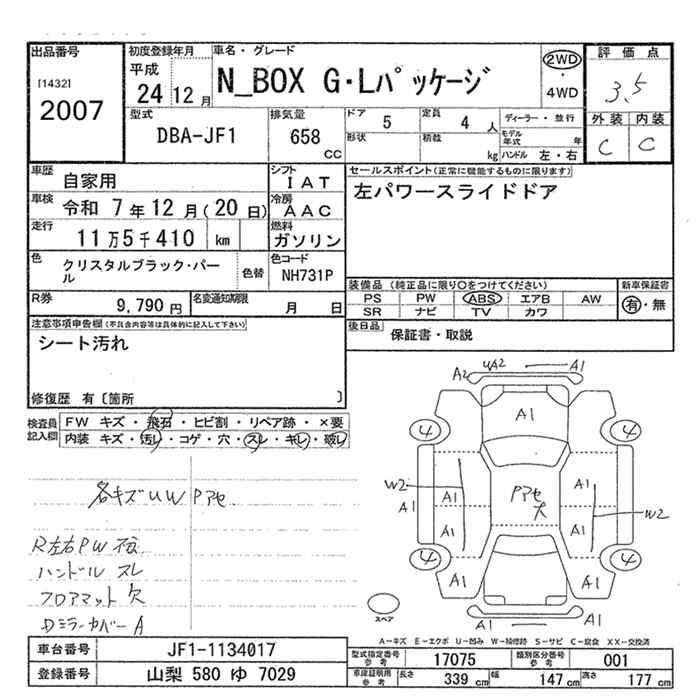 出品番号
[1432]
2007
初度登録年月
平成
24 12 月
車名・グレード
N_BOX G・Lパッケージ
2WD
・
4WD
評価点
3.5
外装 内装
C C
型式
DBA-JF1
排気量
658 CC
ドア 5
定員 4 人
形状
積載 kg
ディーラー・並行
モデル年式 年
ハンドル 左・右
車歴 自家用
シフト IAT
車検 令和 7 年 12 月(20 日)
冷房 AAC
走行 11 万 5 千 410 km
燃料 ガソリン
色 クリスタルブラック・パール
色替
色コード NH731P
R券 9,790 円
名変通知期限 月 日
セールスポイント(正常に機能するものに限ります)
左パワースライドドア
装備品 (純正品に限り〇をつけてください)
PS PW ABS エアB AW
SR ナビ TV カワ
新車保証書
有・無
後日品 保証書・取説
注意事項申告欄(不具合内容等は具体的に記入して下さい)
シート汚れ
修復歴 有〔箇所 〕
検査員記入欄
FW キズ・飛石・ヒビ割・リペア跡・×要
内装 キズ・汚レ・コゲ・穴・スレ・キレ・破レ
各キズUW Pアセ
R左右PW
ハンドル スレ
フロアマット 欠
Dミラーカバー A
A2 UA2 A1
A1
4 4
W2 A1 A1
A1
Pアセ
大
A1 A1
W2
4 4
A1 A1 A1
A1
スペア
A-キズ E-エクボ U-凹み W-補修跡 S-サビ C-腐食 XX-交換済
車台番号 JF1-1134017
登録番号 山梨 580 ゆ 7029
型式指定番号 参考 17075
類別区分番号 参考 001
車庫証明用 参考 長さ 339 cm 幅 147 cm 高さ 177 cm